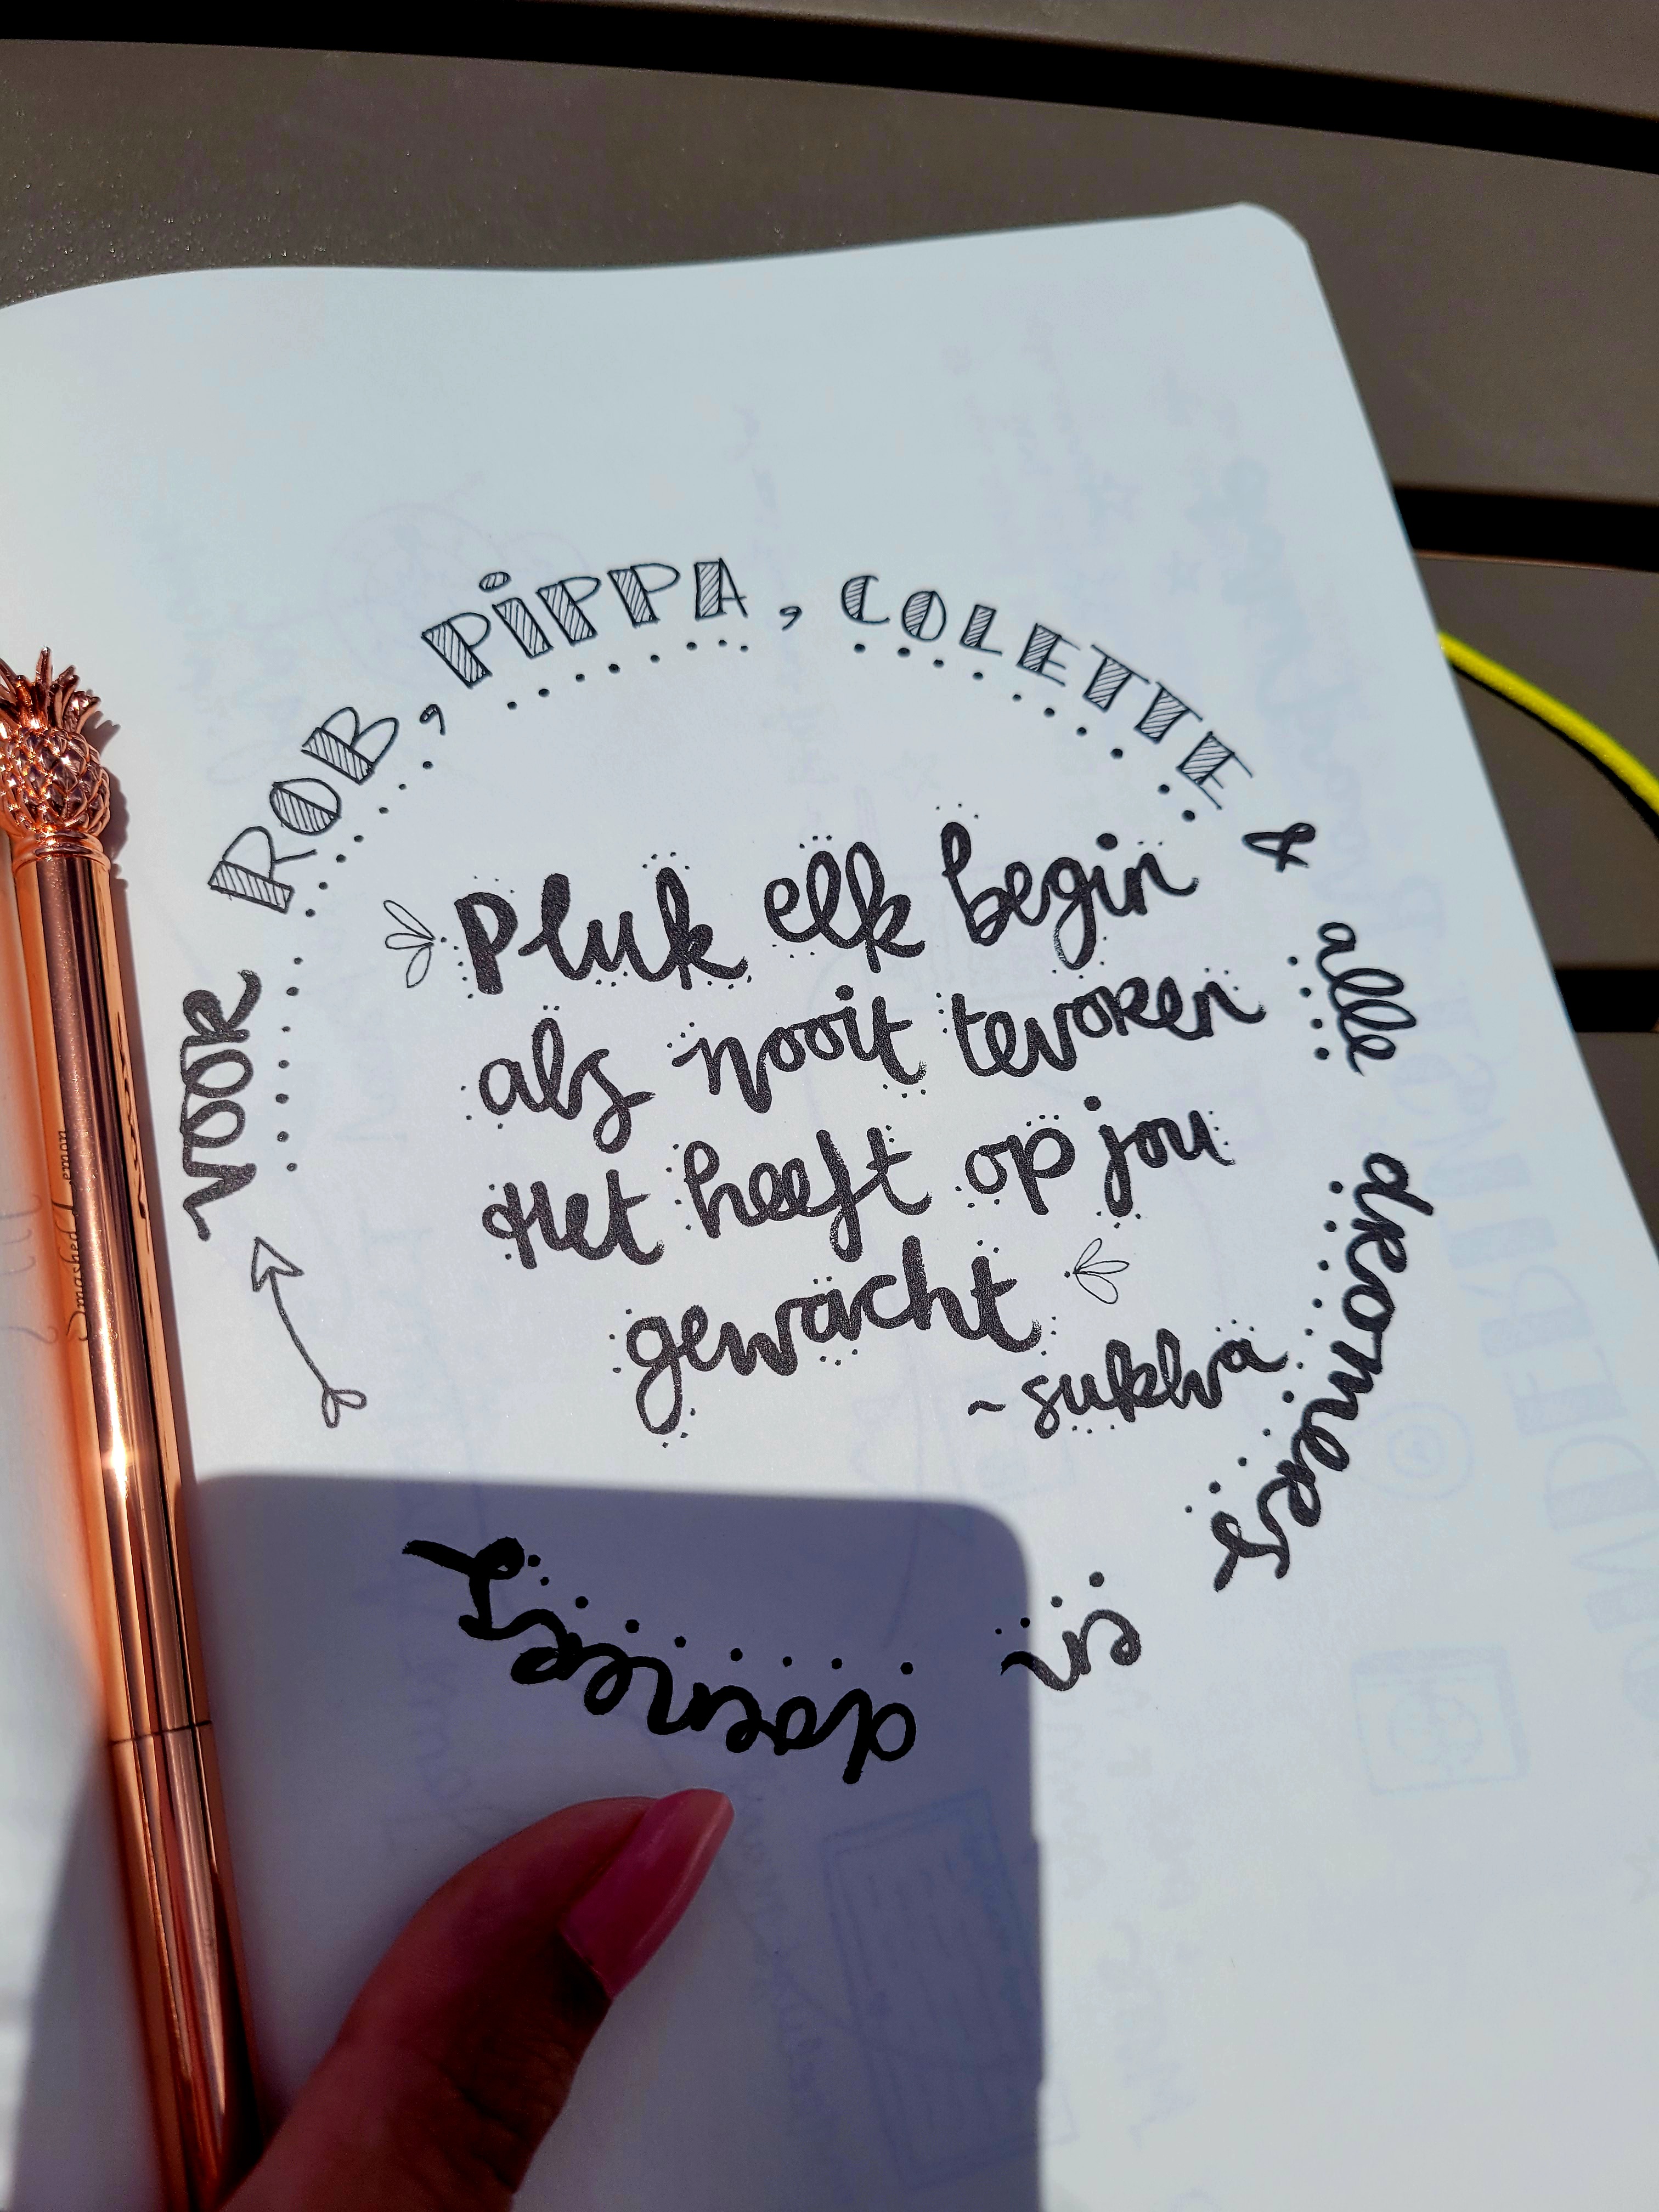 VOOR ROB, PIPPA, COLETTE & alle dromers en doeners
Pluk elk begin
als nooit tevoren
Het heeft op jou
gewacht
~ sukha
Smashed Lemon